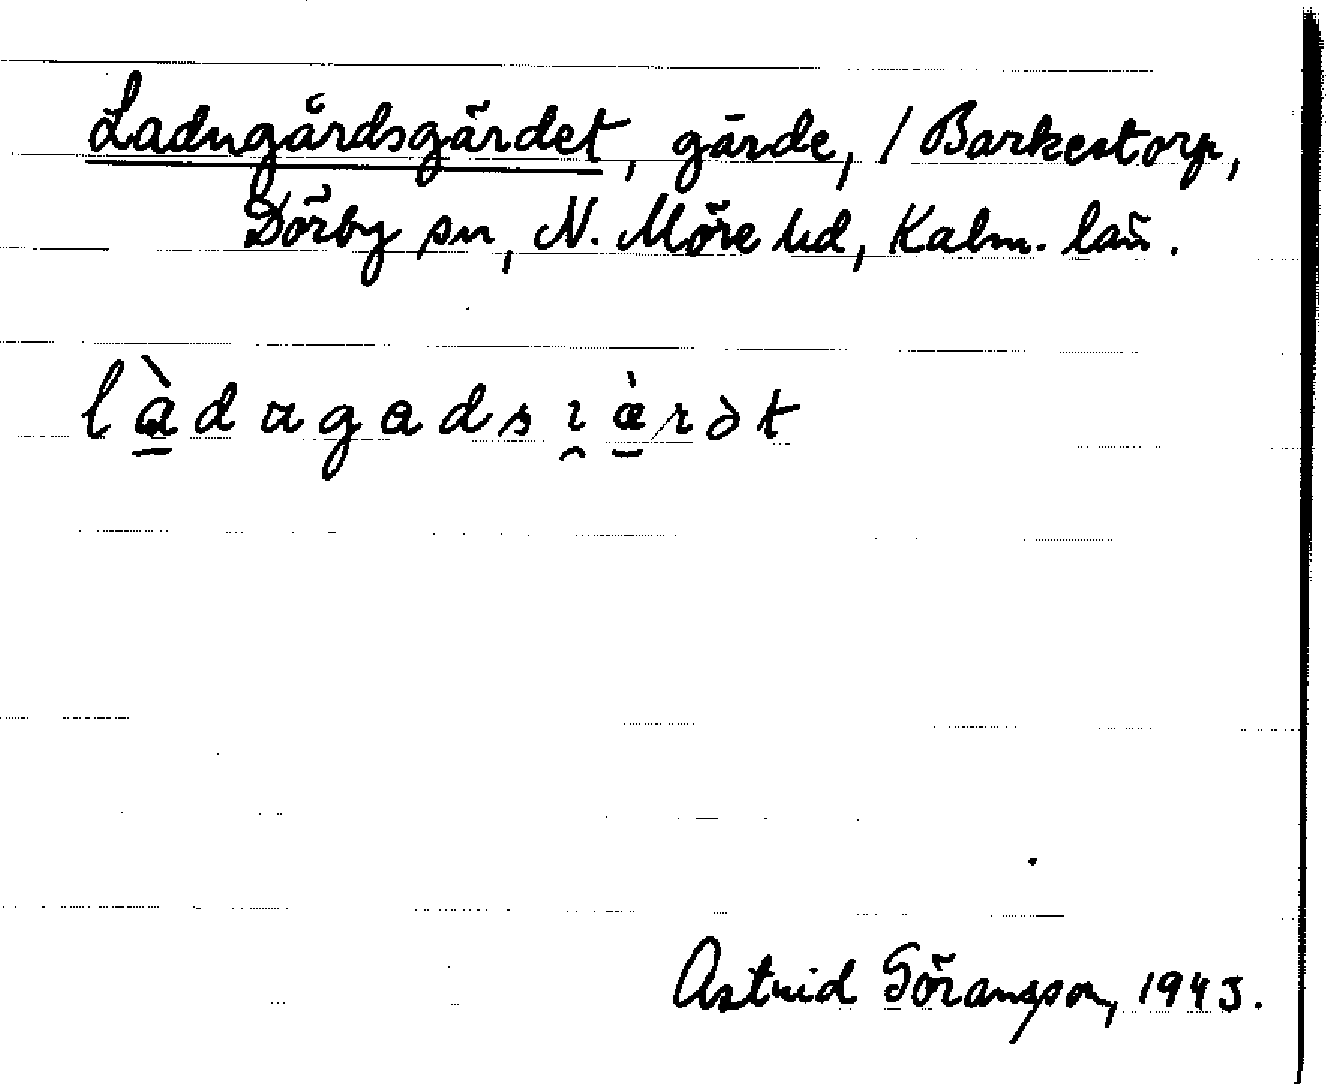 Ladugårdsgärdet, gärde, / Barkestorp,
Dörby sn, N. Möre hd, Kalm. län.
l<u>à</u>dagadsı̯<u>æ̀</u>rət
Astrid Göransson, 1943.